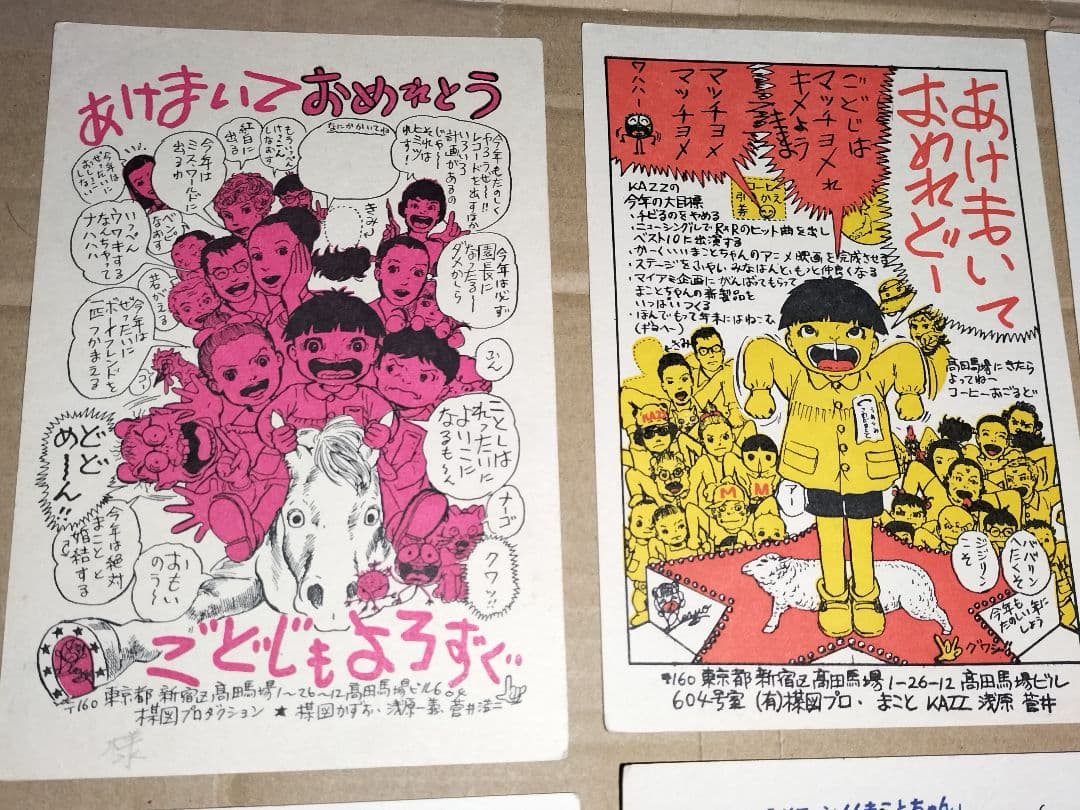 あけまいておめれとう
今年もたのしく
やろうぜ〜!!
レコードを出すほか
いろいろ
計画があるの
じゃ〜!
それは
ヒミツ
れす!!
なにかかいてね
もういっぺん
けっこん
しなおす
紅白に
出る
今年は
ミス・ワールドに
出るわ
いっぺん
ウワキする
なんちゃって
ナハハハ
若がえる
今年は
ぜったいに
ボーイフレンドを
一匹つかまえる
コケー
きみん
今年は必ず
園長に
なったる〜
ダメかしら
うん
ことしは
れったいに
よいこに
なるも〜ん
ナーゴ
クワッ!!
どど
め〜ん!!
今年は絶対
まことと
婚結する
おもい
のう〜
ごどじもよろずぐ
〒160 東京都新宿区高田馬場1〜26〜12高田馬場ビル604
楳図プロダクション ★ 楳図かずお・浅原一義・菅井浩二
様
あけまいて
おめれどー
ごどじは
マッチョメれ
キメよう
マッチョメ
マッチョメ
ワハハー
コーヒー
引きかえ
券
KAZZの
今年の大目標
・チビるのをやめる
・ニューシングルでR&Rのヒット曲を出し
ベスト10に出演する
・かーくいいまことちゃんのアニメ映画を完成させる
・ステージをふやしみなはんともっと仲良くなる
・マイアミ企画にがんばってもらって
まことちゃんの新製品を
いっぱいつくる
・ほんでもって年末にはねこむ
きみ
高田馬場にきたら
よってねー
コーヒーおごるど
KAZZ
M
M
アー
ババリン
へたくそ
ジジリン
そ
今年も
たのしい年に
しよう
グワシ
〒160 東京都新宿区高田馬場1-26-12 高田馬場ビル
604号室 (有)楳図プロ・まこと KAZZ 浅原 菅井
まことちゃん